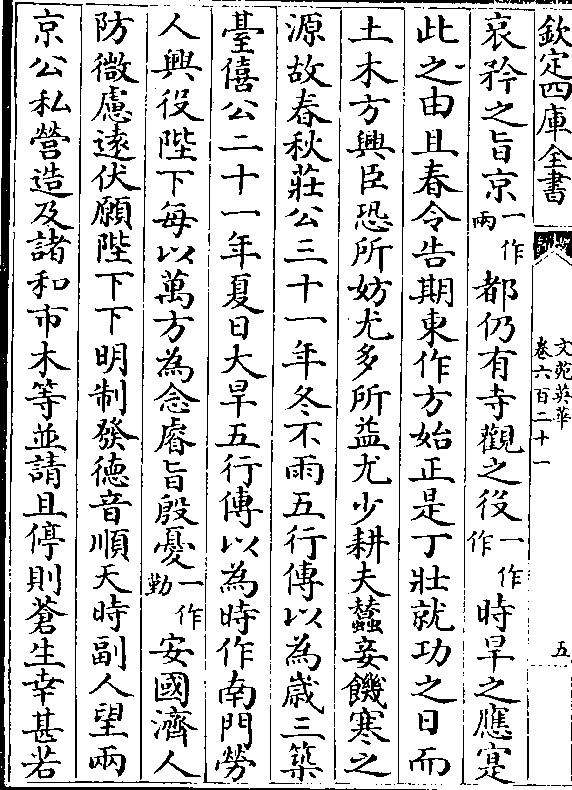 欽定四庫全書
文苑英華
卷六百二十一
五
哀矜之旨京一作兩都仍有寺觀之役一作作時旱之應寔
此之由且春令告期東作方始正是丁壯就功之日而
土木方興臣恐所妨尤多所益尤少耕夫蠶妾饑寒之
源故春秋莊公三十一年冬不雨五行傳以為歳三築
臺僖公二十一年夏日大旱五行傳以為時作南門勞
人興役陛下每以萬方為念睿旨殷憂一作勤安國濟人
防微慮逺伏願陛下下明制發徳音順天時副人望兩
京公私營造及諸和市木等並請且停則蒼生幸甚若